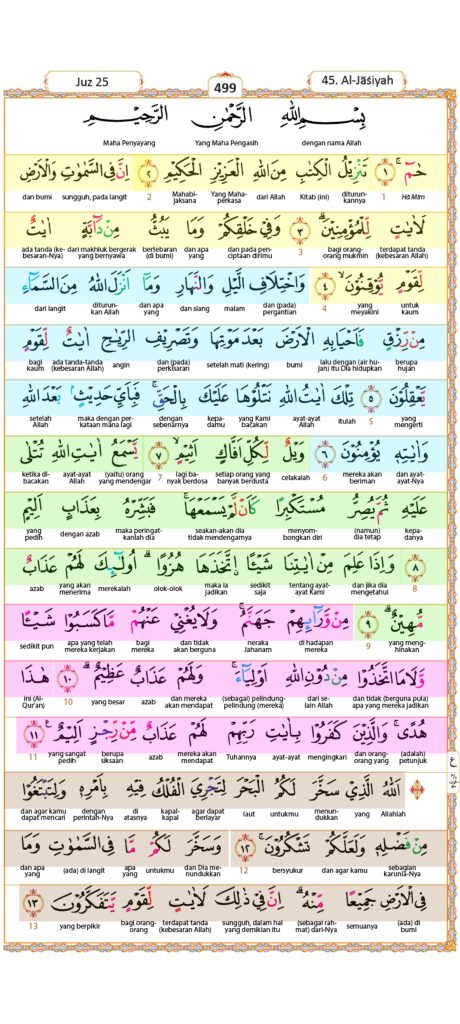 Juz 25
499
45. Al-Jāśiyah
بِسْمِ اللّٰهِ الرَّحْمٰنِ الرَّحِيْمِ
dengan nama Allah Yang Maha Pengasih Maha Penyayang
حٰمۤ ۚ ١ تَنْزِيْلُ الْكِتٰبِ مِنَ اللّٰهِ الْعَزِيْزِ الْحَكِيْمِ ٢ اِنَّ فِى السَّمٰوٰتِ وَالْاَرْضِ
Hā Mīm 1 diturunkannya Kitab (ini) dari Allah Yang Mahaperkasa Mahabijaksana 2 sungguh, pada langit dan bumi
لَاٰيٰتٍ لِّلْمُؤْمِنِيْنَ ۗ ٣ وَفِيْ خَلْقِكُمْ وَمَا يَبُثُّ مِنْ دَاۤبَّةٍ اٰيٰتٌ
terdapat tanda (kebesaran Allah) bagi orang-orang mukmin 3 dan pada penciptaan dirimu dan apa yang bertebaran (di bumi) dari makhluk bergerak yang bernyawa ada tanda (kebesaran-Nya)
لِّقَوْمٍ يُّوْقِنُوْنَ ۙ ٤ وَاخْتِلَافِ الَّيْلِ وَالنَّهَارِ وَمَآ اَنْزَلَ اللّٰهُ مِنَ السَّمَاۤءِ
untuk kaum yang meyakini 4 dan (pada) pergantian malam dan siang dan apa yang diturunkan Allah dari langit
مِنْ رِّزْقٍ فَاَحْيَا بِهِ الْاَرْضَ بَعْدَ مَوْتِهَا وَتَصْرِيْفِ الرِّيٰحِ اٰيٰتٌ لِّقَوْمٍ
berupa hujan lalu dengan (air hujan) itu Dia hidupkan bumi setelah mati (kering) dan (pada) perkisaran angin ada tanda-tanda (kebesaran Allah) bagi kaum
يَّعْقِلُوْنَ ٥ تِلْكَ اٰيٰتُ اللّٰهِ نَتْلُوْهَا عَلَيْكَ بِالْحَقِّۚ فَبِاَيِّ حَدِيْثٍۢ بَعْدَ اللّٰهِ
yang mengerti 5 itulah ayat-ayat Allah yang Kami bacakan kepadamu dengan sebenarnya maka dengan perkataan mana lagi setelah Allah
وَاٰيٰتِهٖ يُؤْمِنُوْنَ ٦ وَيْلٌ لِّكُلِّ اَفَّاكٍ اَثِيْمٍ ۙ ٧ يَّسْمَعُ اٰيٰتِ اللّٰهِ تُتْلٰى
dan ayat-ayat-Nya mereka akan beriman 6 celakalah setiap orang yang banyak berdusta lagi banyak berdosa 7 (yaitu) orang yang mendengar ayat-ayat Allah ketika dibacakan
عَلَيْهِ ثُمَّ يُصِرُّ مُسْتَكْبِرًا كَاَنْ لَّمْ يَسْمَعْهَاۚ فَبَشِّرْهُ بِعَذَابٍ اَلِيْمٍ
kepadanya (namun) dia tetap menyombongkan diri seakan-akan dia tidak mendengarnya maka peringatkanlah dia dengan azab yang pedih
٨ وَاِذَا عَلِمَ مِنْ اٰيٰتِنَا شَيْـًٔا ۨاتَّخَذَهَا هُزُوًاۗ اُولٰۤىِٕكَ لَهُمْ عَذَابٌ
8 dan jika dia mengetahui tentang ayat-ayat Kami sedikit saja maka ia jadikan olok-olok merekalah yang akan menerima azab
مُّهِيْنٌۗ ٩ مِنْ وَّرَاۤىِٕهِمْ جَهَنَّمُۚ وَلَا يُغْنِيْ عَنْهُمْ مَّا كَسَبُوْا شَيْـًٔا
yang menghinakan 9 di hadapan mereka neraka Jahanam dan tidak akan berguna bagi mereka apa yang telah mereka kerjakan sedikit pun
وَّلَا مَا اتَّخَذُوْا مِنْ دُوْنِ اللّٰهِ اَوْلِيَاۤءَۚ وَلَهُمْ عَذَابٌ عَظِيْمٌۗ ١٠ هٰذَا
dan tidak (berguna pula) apa yang mereka jadikan dari selain Allah (sebagai) pelindung-pelindung (mereka) dan mereka akan mendapat azab yang besar 10 ini (Al-Qur'an)
هُدًىۚ وَالَّذِيْنَ كَفَرُوْا بِاٰيٰتِ رَبِّهِمْ لَهُمْ عَذَابٌ مِّنْ رِّجْزٍ اَلِيْمٌ ۗ ١١
(adalah) petunjuk dan orang-orang yang mengingkari ayat-ayat Tuhannya mereka akan mendapat azab berupa siksaan yang sangat pedih 11
ع
اَللّٰهُ الَّذِيْ سَخَّرَ لَكُمُ الْبَحْرَ لِتَجْرِيَ الْفُلْكُ فِيْهِ بِاَمْرِهٖ وَلِتَبْتَغُوْا
Allahlah yang menundukkan untukmu laut agar dapat berlayar kapal-kapal di atasnya dengan perintah-Nya dan agar kamu dapat mencari
مِنْ فَضْلِهٖ وَلَعَلَّكُمْ تَشْكُرُوْنَۚ ١٢ وَسَخَّرَ لَكُمْ مَّا فِى السَّمٰوٰتِ وَمَا
sebagian karunia-Nya dan agar kamu bersyukur 12 dan Dia menundukkan untukmu apa yang (ada) di langit dan apa yang
فِى الْاَرْضِ جَمِيْعًا مِّنْهُ ۗ اِنَّ فِيْ ذٰلِكَ لَاٰيٰتٍ لِّقَوْمٍ يَّتَفَكَّرُوْنَ ١٣
(ada) di bumi semuanya (sebagai rahmat) dari-Nya sungguh, dalam hal yang demikian itu terdapat tanda (kebesaran Allah) bagi orang-orang yang berpikir 13